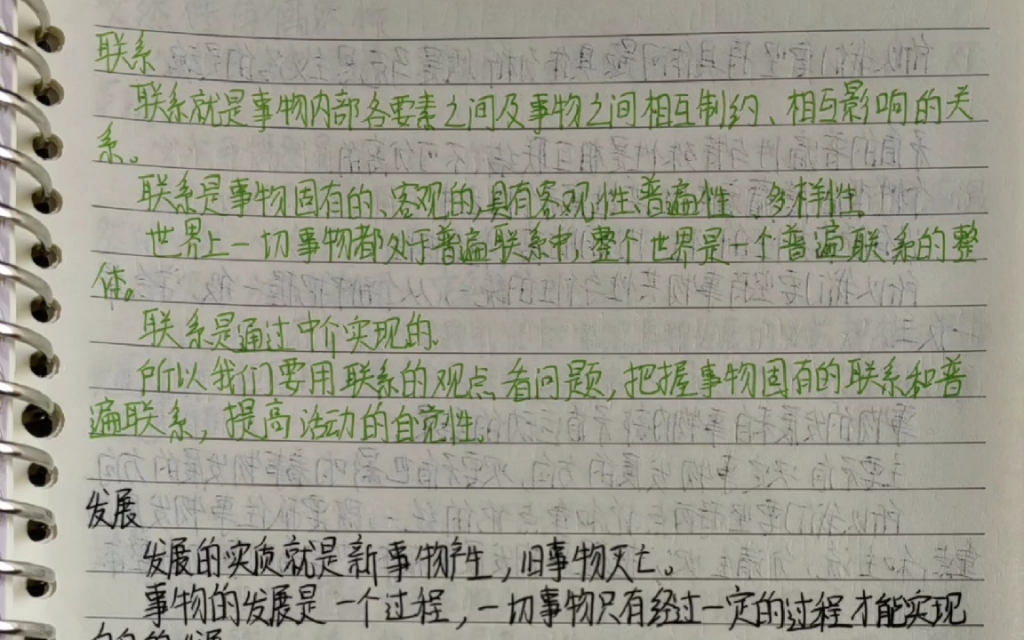 联系
联系就是事物内部各要素之间及事物之间相互制约、相互影响的关
系。
联系是事物固有的、客观的,具有客观性、普遍性、多样性。
世界上一切事物都处于普遍联系中,整个世界是一个普遍联系的整
体。
联系是通过中介实现的。
所以我们要用联系的观点看问题,把握事物固有的联系和普
遍联系,提高活动的自觉性。
发展
发展的实质就是新事物产生,旧事物灭亡。
事物的发展是一个过程,一切事物只有经过一定的过程才能实现